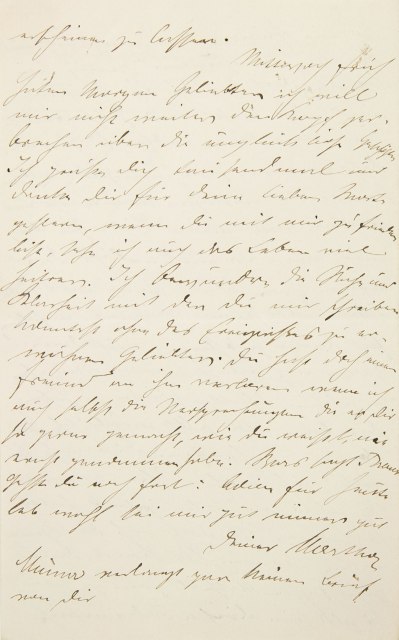 erscheinen zu lassen.
Mittwoch früh
Guten Morgen Geliebter ich will
mir nicht weiter den Kopf zer-
brechen über die unglückliche Geschichte
Ich grüße Dich tausendmal und
danke Dir für Deine lieben Worte
gestern, wenn Du mit mir zufrieden
bist, sehe ich auch das Leben viel
heiterer. Ich bewundere die Ruhe und
Klarheit mit der Du mir schreiben
konntest ohne des Ereignisses zu er-
wähnen Geliebter. Du hast doch einen
Freund an ihm verloren wenn ich
auch selbst die Versprechungen die er Dir
so gerne gemacht, wie Du weißt, nie
ernst genommen habe. Was sagt
gehst Du noch fort? Adieu für heute
leb wohl sei mir gut immer gut
Deiner Martha
Minna verlangt gar keinen Brief
von Dir